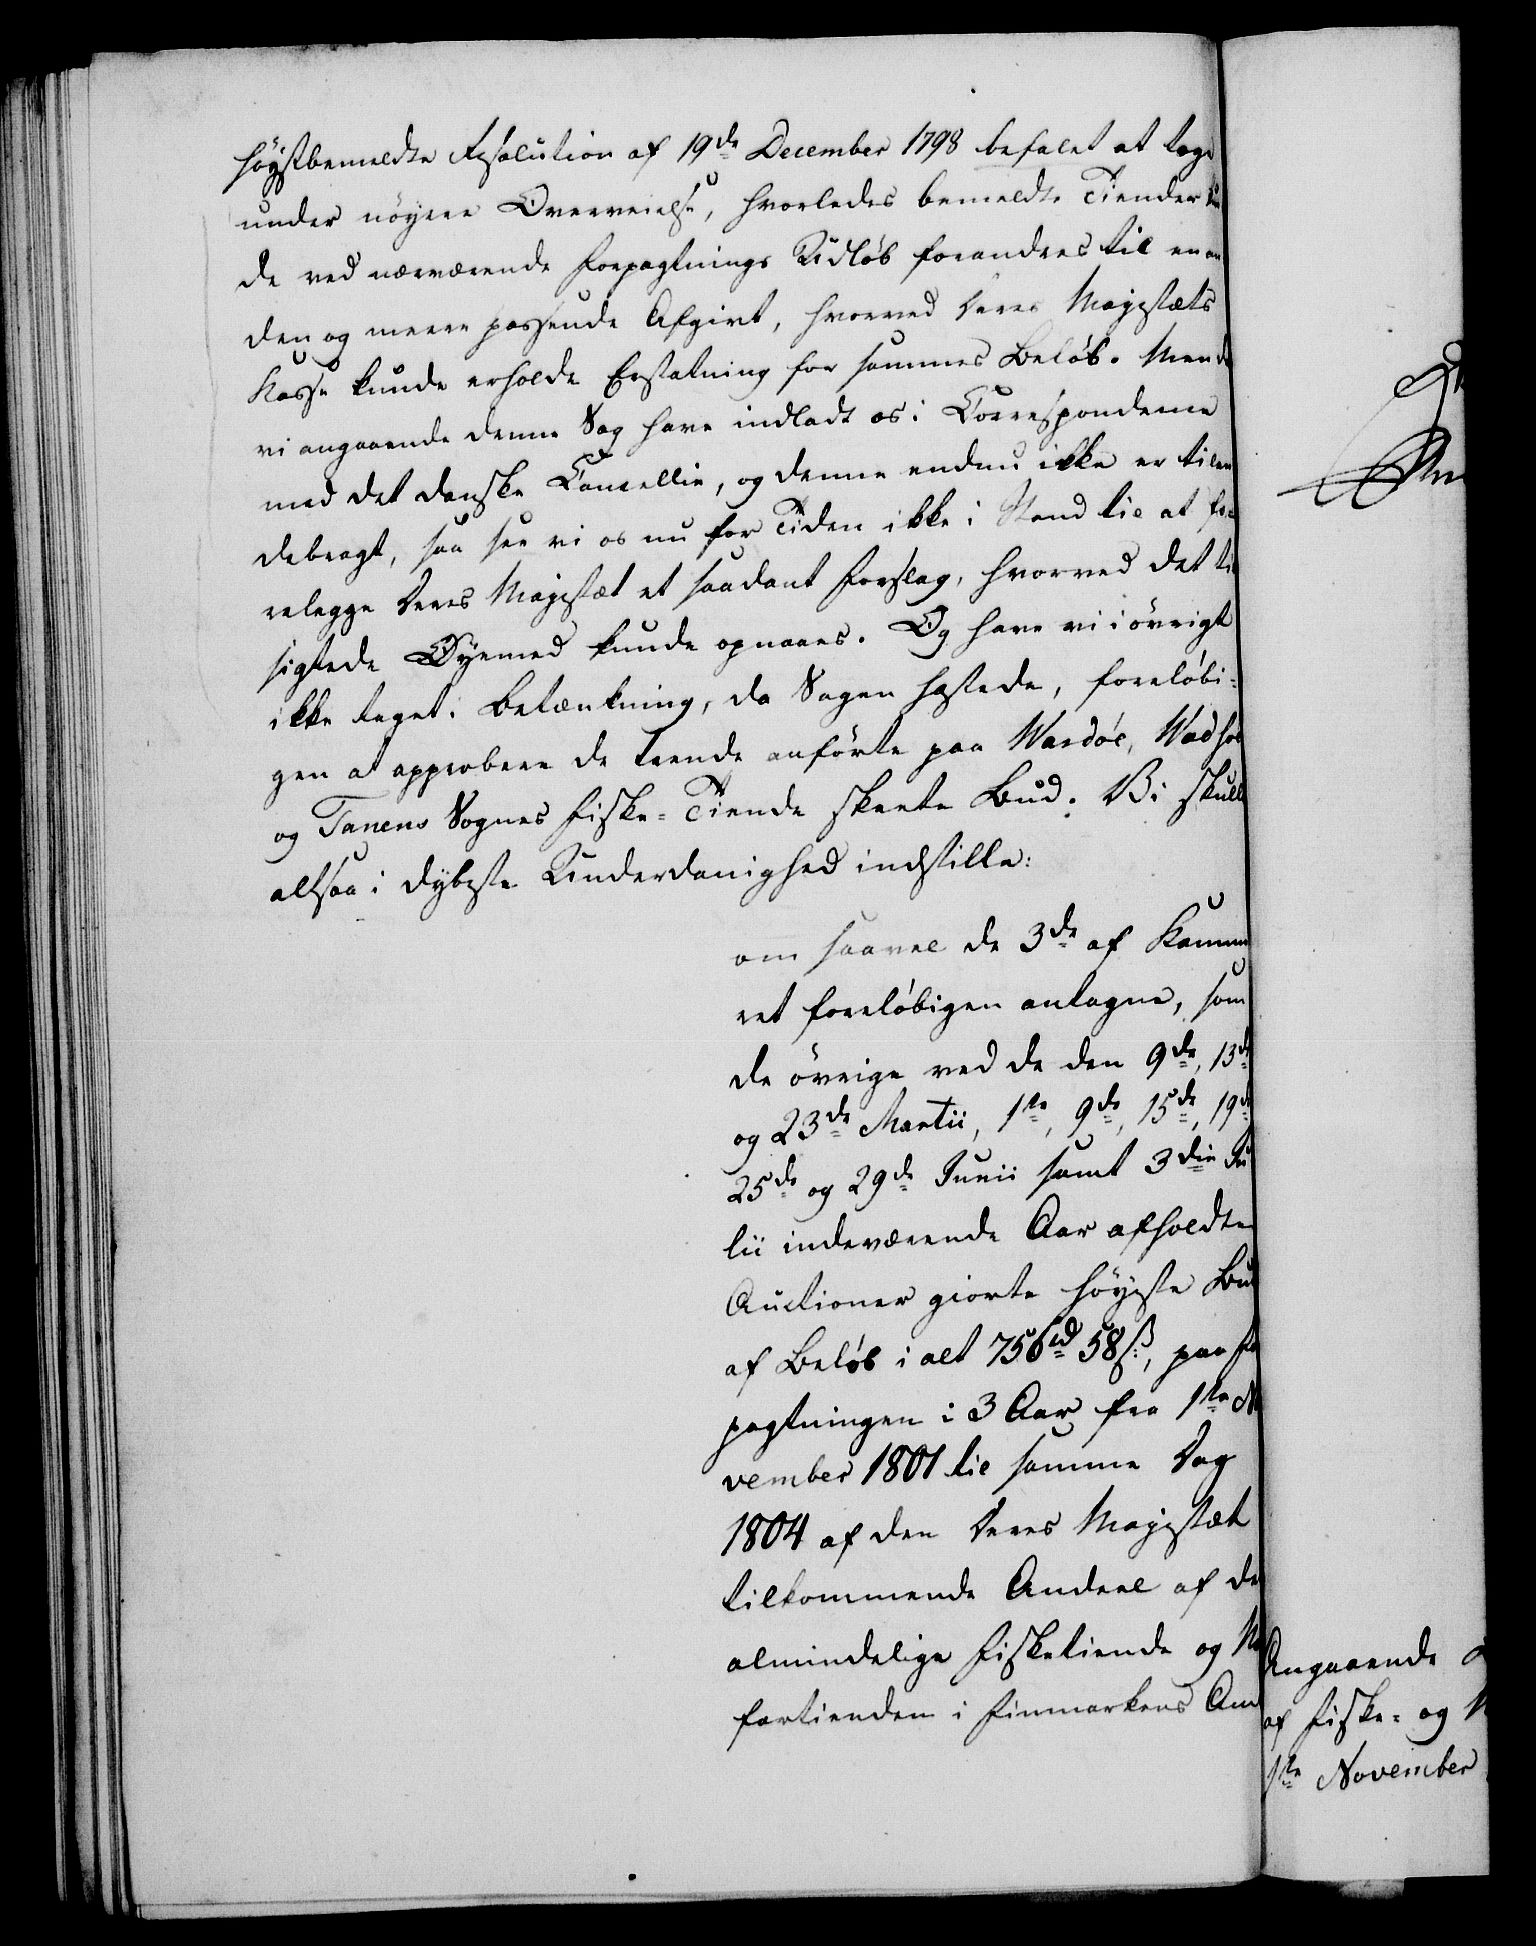 höystbemeldte Resolution af 19de December 1798 befalet at tage
under nöyere Overveielse, hvorledes bemeldte Tiender kun
de ved nærværende Forpagtnings Udløb forandres til en an
den og meere passende Afgivt, hvorved Deres Majestæts
Kasse kunde erholde Erstatning for sammes Beløb. Men da
vi angaaende denne Sag have indladt os i Correspondence
med det danske Cancellie, og denne endnu ikke er tilen
debragt, saa see vi os nu for Tiden ikke i Stand til at fo
relegge Deres Majestæt et saadant Forslag, hvorved det til
sigtede Øyemed kunde opnaaes. Og have vi i övrigt
ikke taget i Betænkning, da Sagen hastede, forelöbi-
gen at approbere de trende anförte paa Wardöe, Wadsöe
og Tanens Sognes Fiske-Tiende skeete Bud. Vi skulle
altsaa i dybeste Underdanighed indstille:
om saavel de 3de af Kamme
ret forelöbigen antagne, som
de övrige ved de den 9de, 13de
og 23de Martii, 1te, 9de, 15de, 19de
25de og 29de Junii samt 3die Ju
lii indeværende Aar afholdte
Auctioner giorte höyeste Bud
af Beløb i alt 756rd 58s, paa For
pagtningen i 3 Aar fra 1te No
vember 1801 til samme Dag
1804 af den Deres Majestæt
tilkommende Andeel af de
almindelige Fisketiende og
fartienden i Finmarkens Am
Angaaende
af Fiske- og
1te November